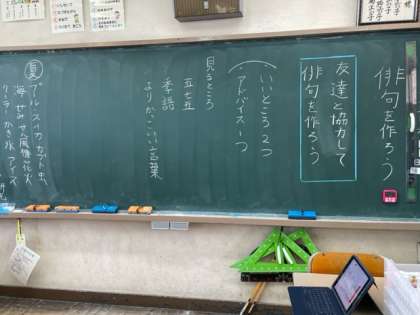 俳句を作ろう
友達と協力して
俳句を作ろう
いいところ2つ
アドバイス1つ
見るところ
五七五
季語
よりかっこいい言葉
夏
プール スイカ カブト虫
海 せみ せん風機 花火
クーラー かき氷 アイス